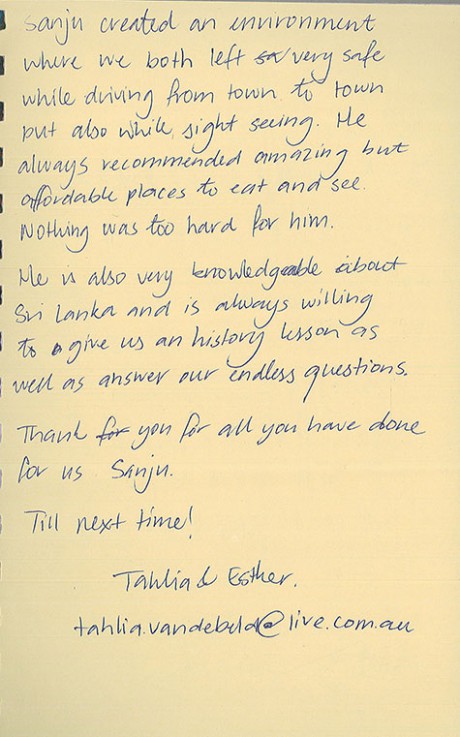 Sanju created an environment
where we both left sa very safe
while driving from town to town
but also while sight seeing. He
always recommended amazing but
affordable places to eat and see.
Nothing was too hard for him.
He is also very knowledgeable about
Sri Lanka and is always willing
to give us an history lesson as
well as answer our endless questions.
Thank for you for all you have done
for us Sanju.
Till next time!
Tahlia & Esther.